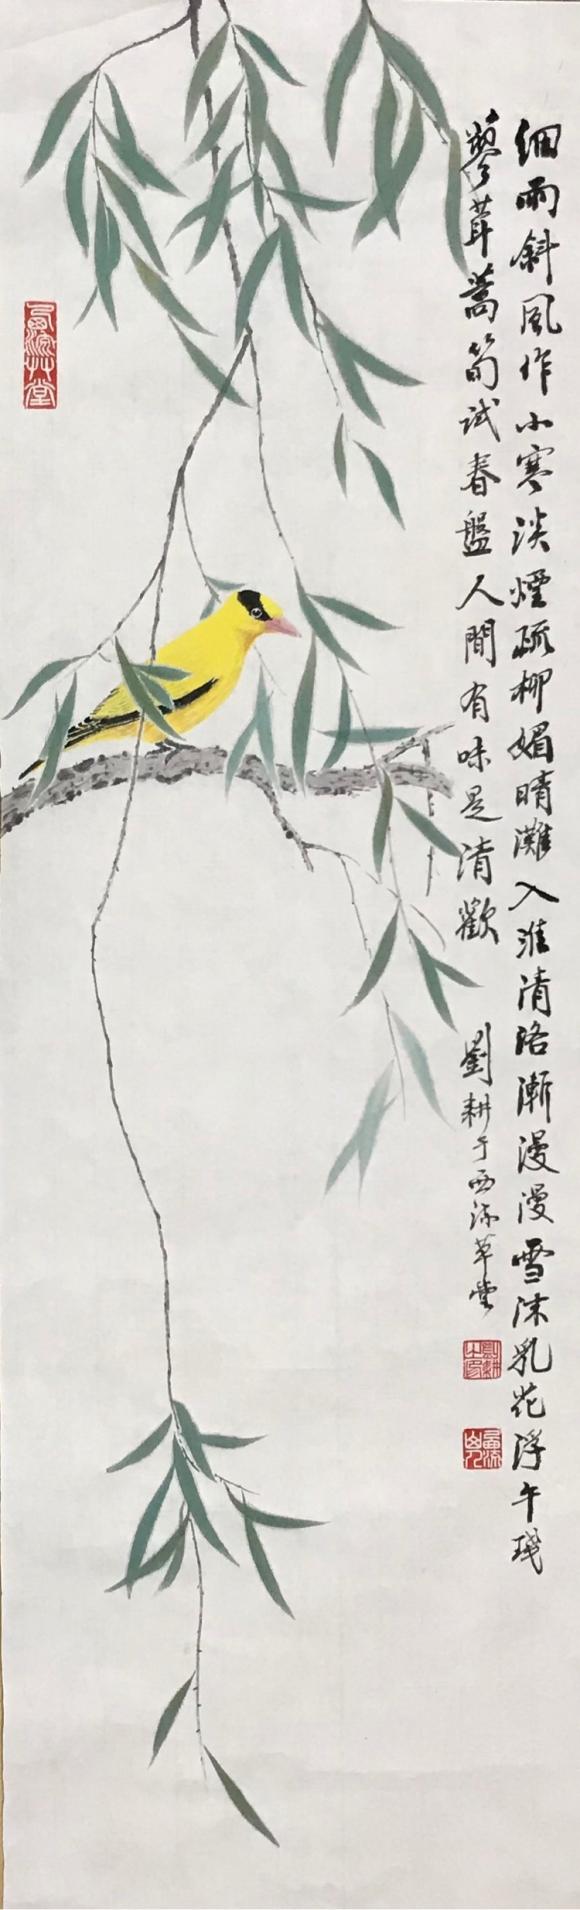 細雨斜風作小寒淡煙疏柳媚晴灘入淮清洛漸漫漫雪沫乳花浮午琖
蓼茸蒿筍試春盤人間有味是清歡 劉耕于西草堂
劉耕之印